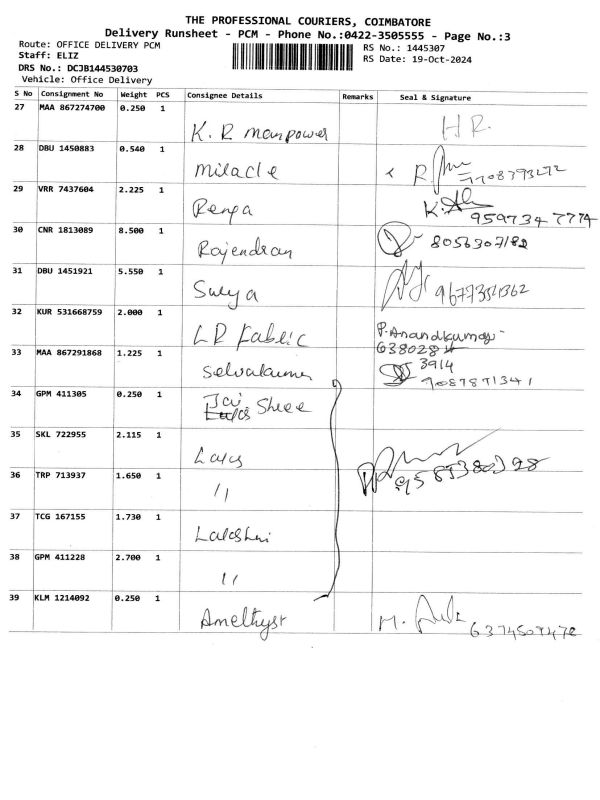 THE PROFESSIONAL COURIERS, COIMBATORE
Delivery Runsheet - PCM - Phone No.:0422-3505555 - Page No.:3
Route: OFFICE DELIVERY PCM RS No.: 1445307
Staff: ELIZ RS Date: 19-Oct-2024
DRS No.: DCJB144530703
Vehicle: Office Delivery
S No Consignment No Weight PCS Consignee Details Remarks Seal & Signature
27 MAA 867274700 0.250 1
K. R manpower H R.
28 DBU 1450883 0.540 1
Miracle R.
29 VRR 7437604 2.225 1
Renga K. 9597347774
30 CNR 1813089 8.500 1
Rajendran 8056307182
31 DBU 1451921 5.550 1
Surya
32 KUR 531668759 2.000 1
LR Fabric P. Anandkumar
6380284
33 MAA 867291868 1.225 1 3914
Selvakumar 9087891341
34 GPM 411305 0.250 1
Jai Shree
35 SKL 722955 2.115 1
36 TRP 713937 1.650 1
〃
37 TCG 167155 1.730 1
38 GPM 411228 2.700 1
〃
39 KLM 1214092 0.250 1
Amethyst M.